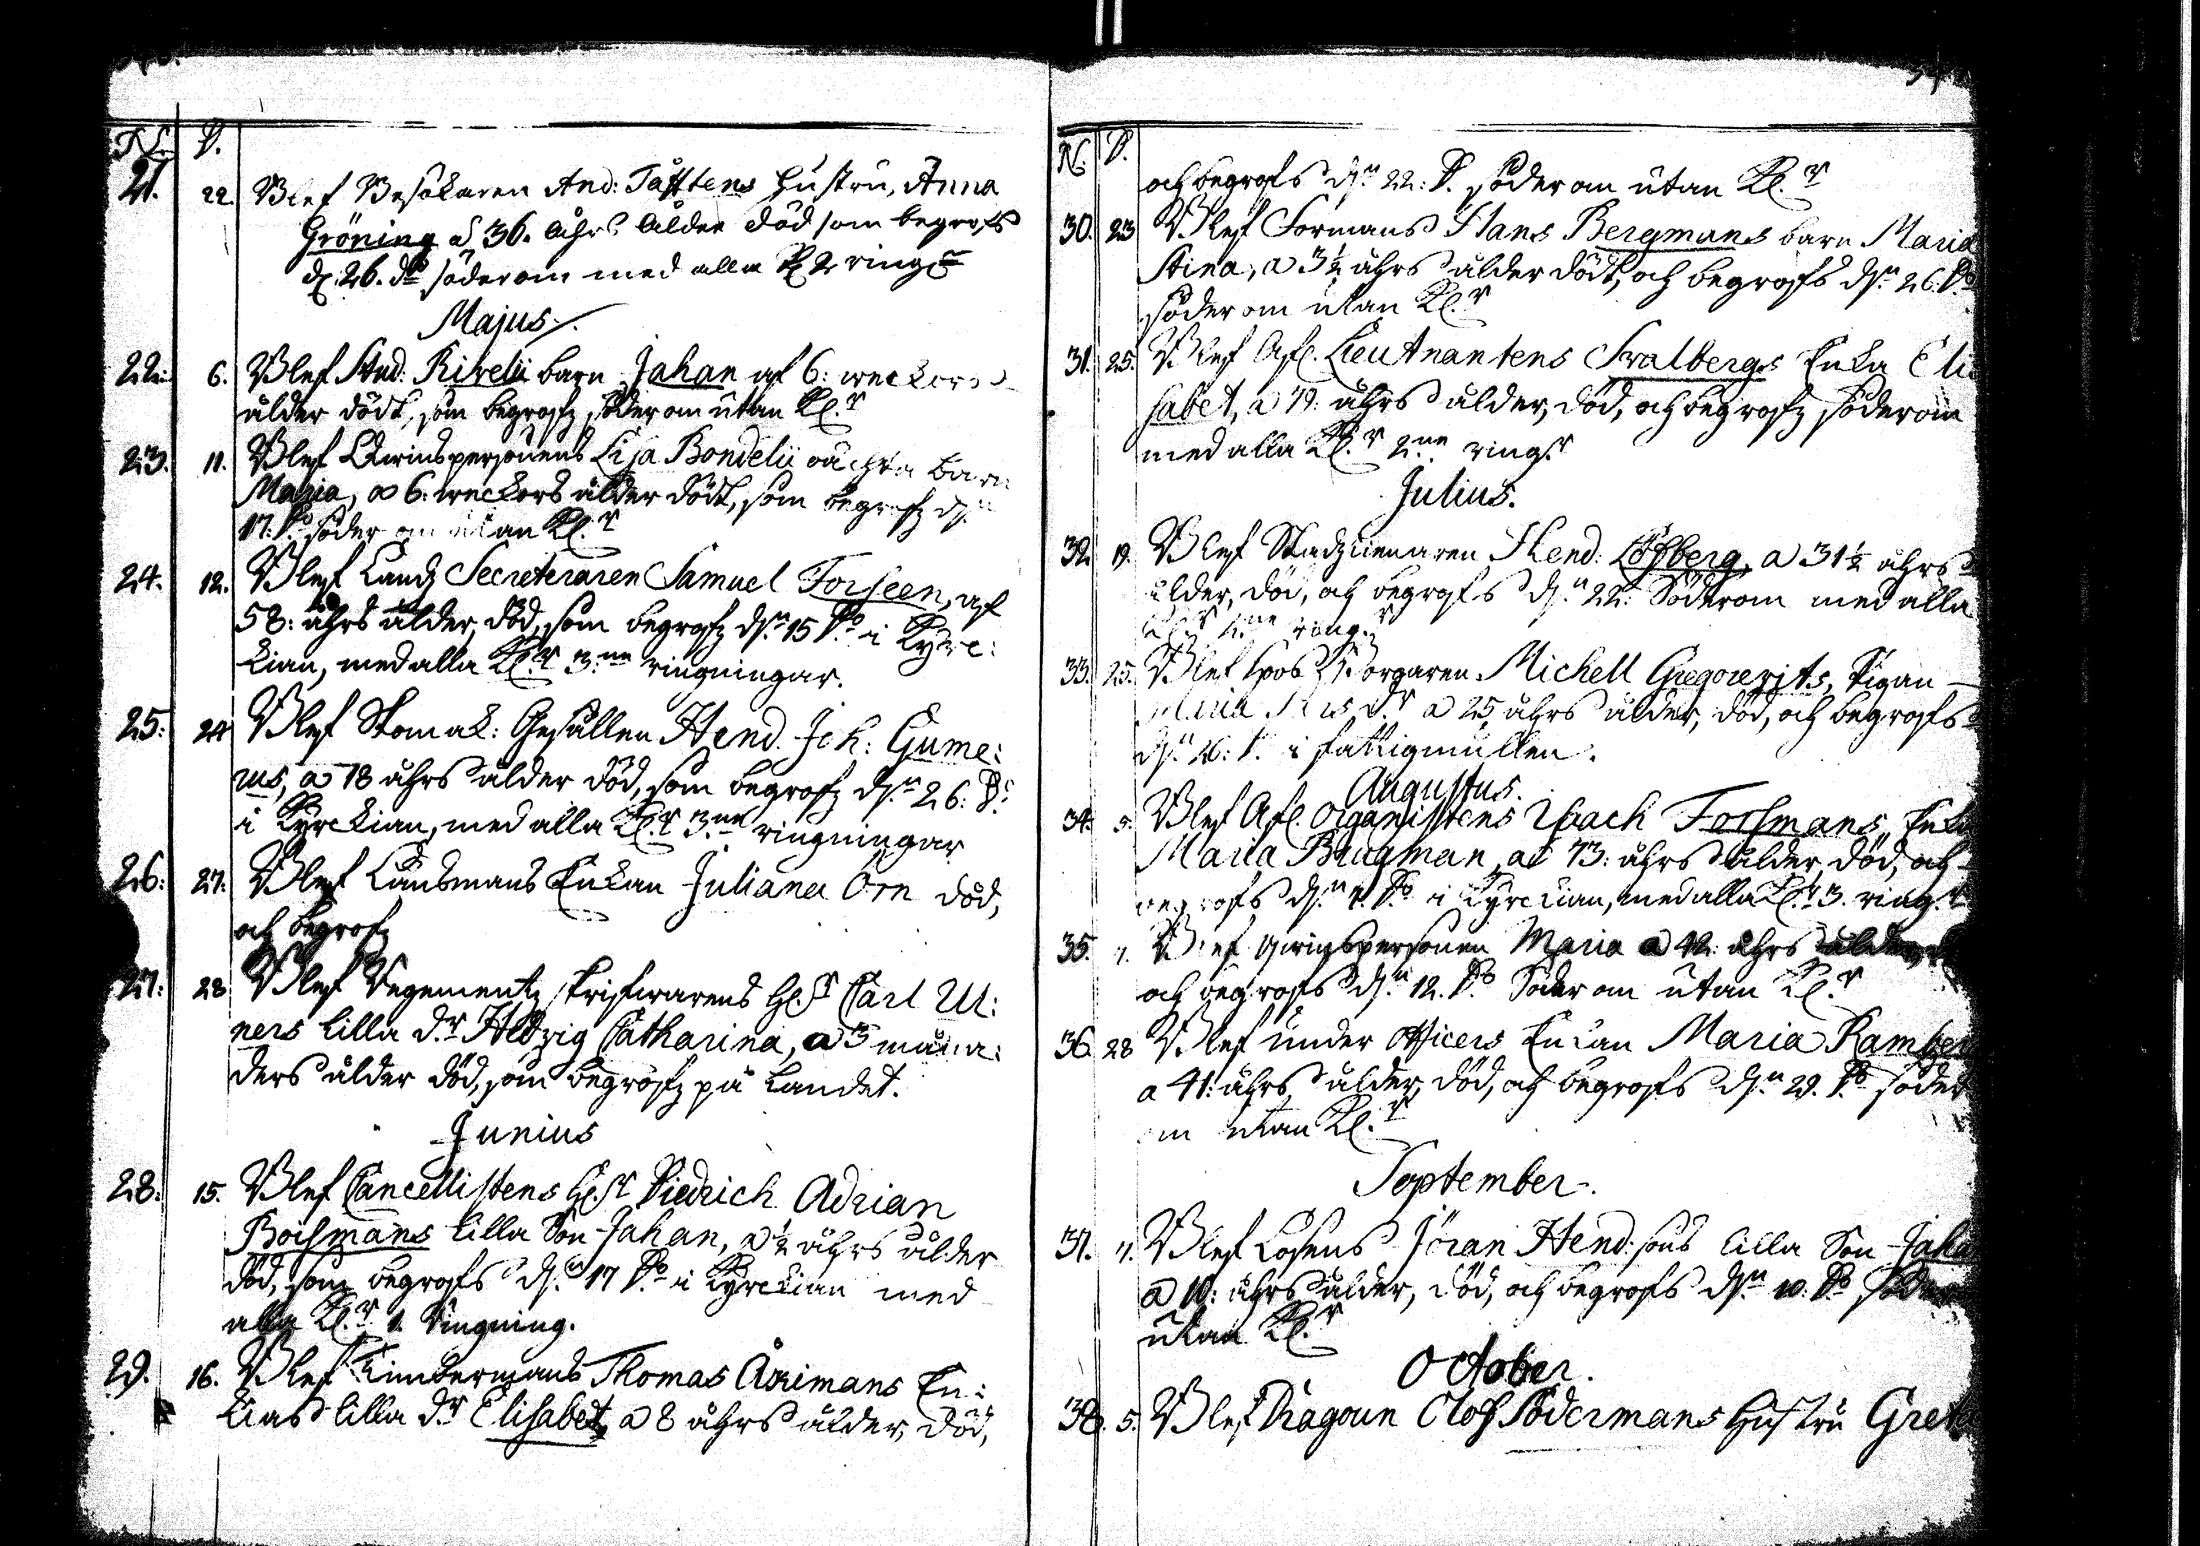 N. D.
21. 22. Blef Besökaren And: Tåfttens Hustru, Anna
Gröning a 36. åhrs ålder död som begrofs
d. 26. do söder om med alla Kl 2 ring
Majus.
22: 6. Blef And: Rivelii barn Johan af 6: weckors
ålder dödt, som begrofz söder om utan Kl.r
23. 11. Blef Qwinspersonens Lisa Bondelii oächta barn
Maria, a 6: weckors ålder dödt, som begrofz d.n
17: do söder om utan Kl.r
24. 12. Blef Landz Secreteraren Samuel Forseen, af
58: åhrs ålder, död, som begrofz d.n 15 do i Kyrc:
kian, med alla Kl.r 3.ne ringningar.
25: 24 Blef Skomak: Gesällen Hend. Joh: Gume:
rus, a 18 åhrs ålder död, som begrofz d.n 26: do
i Kyrckian, med alla Kl.r 3.ne ringningar
26: 27: Blef Länsmans Enkan Juliana Örn död,
och begrofz
27: 28 Blef Regementz skrifwarens H.r Carl Ul:
ners lilla d.r Hedvig Catharina, a 3 måna:
ders ålder död, som begrofz på Landet.
Junius
28: 15. Blef Cancellistens H.r Diedrich Adrian
Boismans lilla Son Johan, a ½ åhrs ålder
död, som begrofs d.n 17 do i Kyrckian med
alla Kl.r 1. Ringning.
29. 16. Blef Timbermans Thomas Årimans En:
kias lilla d.r Elisabet, a 8 åhrs ålder, död,
N. D.
och begrofs d.n 22: D. söder om utan Kl.r
30. 23 Blef Formans Hans Bergmans barn Maria
Stina, a 3½ åhrs ålder dödt, och begrofs d.n 26. do
söder om utan Kl.r
31. 25. Blef Afl. Lieutnantens Svalbergs Enka Eli
sabet, a 79: åhrs ålder, död, och begrofz söder om
med alla Kl.r 2.ne ring.r
Julius.
32 19. Blef Stadztienaren Hend: Löfberg, a 31½ åhrs
ålder, död, och begrofs d.n 22: Söder om med alla
Kl.r 2.ne ring.r
33. 25. Blef Borgaren Michell Gregorevits, Pigan
Maria a 25 åhrs ålder, död, och begrofs
d.n 26: D. i fattigmullen.
Augustus.
34. 5. Blef Afl. Organistens Isach Forsmans, Enka
Maria Brugman, a 73: åhrs ålder, död, och
begrofs d.n do i Kyrckian, med alla Kl.r 3. ring.r
35. 7. Blef Qwinspersonen Maria a 42: åhrs ålder,
och begrofs d.n 12. do Söder om utan Kl.r
36. 28 Blef under Officers Enkan Maria Ramber
a 41: åhrs ålder, död, och begrofs d.n 29. do söder
om utan Kl.r
September.
37. 7. Blef Losens Jöran Hend:sons lilla Son Joha
a 10: åhrs ålder, död, och begrofs d.n 10: do söder
utan Kl.r
October.
38. 5. Blef Dragoun Olof Södermans Hustru Greta